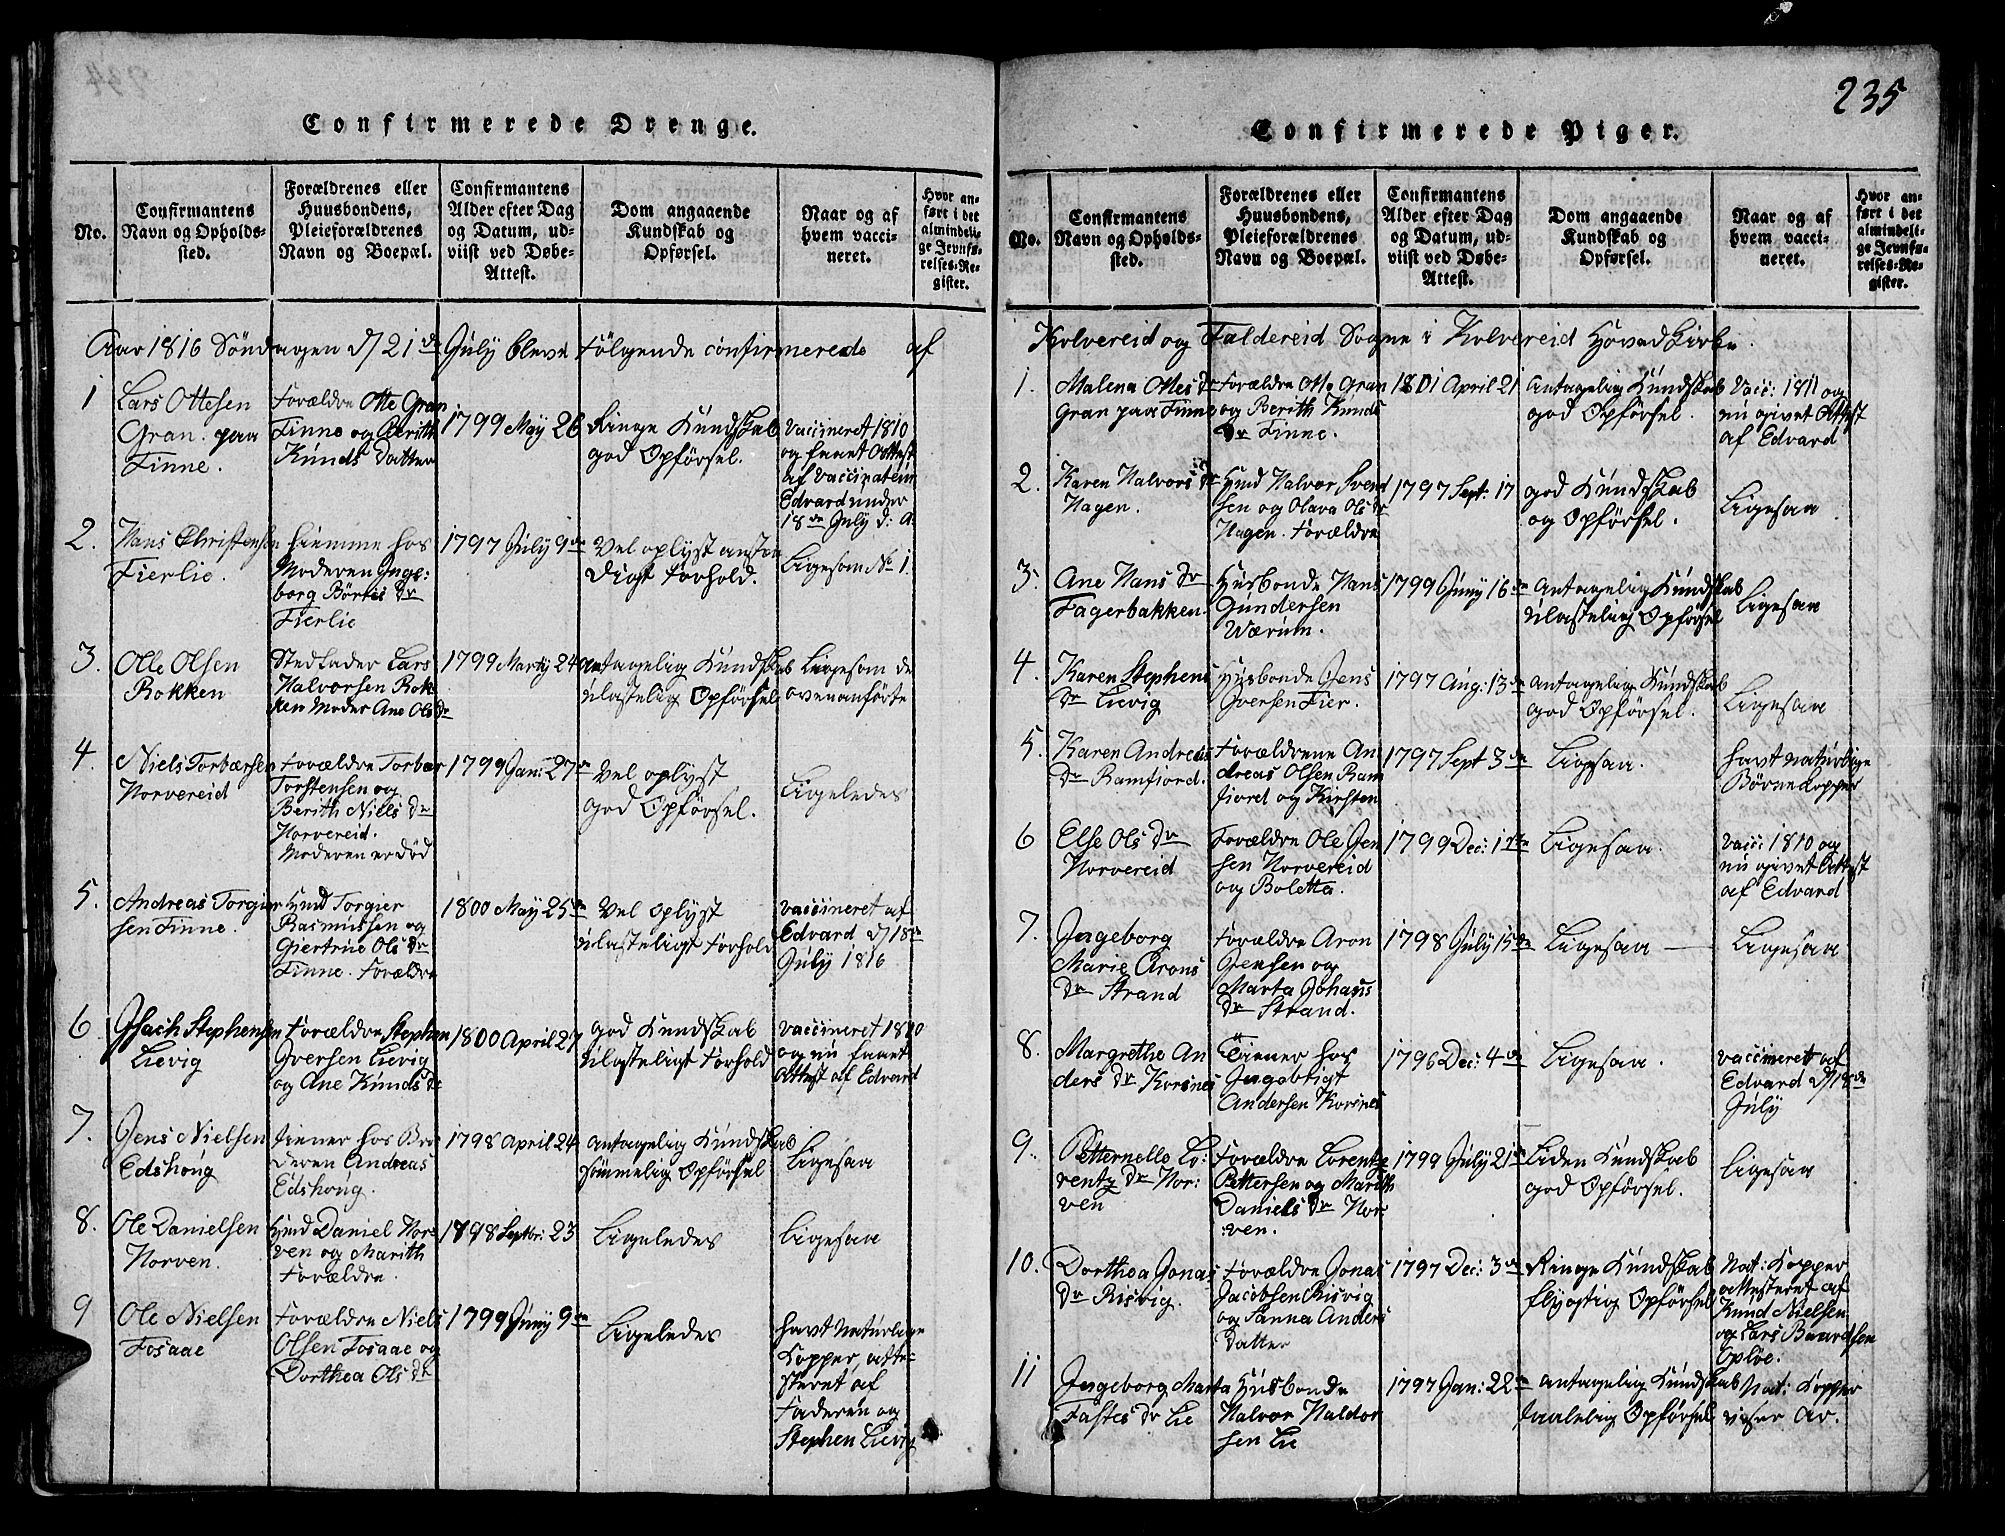 235
Confirmerede Drenge.
No.
Confirmantens
Navn og Opholds-
sted.
Forældrenes eller
Huusbondens,
Pleieforældrenes
Navn og Boepæl.
Confirmantens
Alder efter Dag
og Datum, ud-
viist ved Døbe-
Attest.
Dom angaaende
Kundskab og
Opførsel.
Naar og af
hvem vacci-
neret.
Hvor an-
ført i det
almindeli-
ge Jevnfø-
relses-Re-
gister.
Aar 1816 Söndagen d/21de July bleve følgende confirmerede af
1
Lars Ottesen
Gran. paa
Finne.
Forældre Otte Gran
Finne og Berith
Knuds Datter
1799 May 26
Ringe Kundskab
god Opförsel.
Vaccineret 1810
og faaet Attest
af Vaccinateur
Edvard under
18de July d: A.
2.
Hans Christensen
Fierlie.
hiemme hos
Moderen Inge:
borg Börkis Dr
Fierlie
1797 July 9de
Vel oplyst anstæn
digt Forhold.
Ligesom No 1.
3.
Olle Olsen
Rokken
Stedfader Lars
Halvorsen Rok
ken Moder Ane Ols Dr
1799 Marty 24
antagelig Kundskab
ulastelig Opförsel
Ligesom de
ovenanförte
4.
Niels Torbærsen
Horvereid
Forældre Torbær
Torstensen og
Berith Niels Dr
Horvereid.
Moderen er död
1799 Jan: 27de
Vel oplyst
god Opförsel.
Ligeledes
5.
Andreas Torgier
sen Finne.
Hmd Torgier
Rasmussen og
Giertrue Ols Dr
Finne. Forældre
1800 May 25de
Vel oplyst
ulasteligt Forhold
vaccineret af
Edvard d/18de
July 1816
6
Isach Stephensen
Lievig
Forældre Stephen
Iversen Lievig
og Ane Knuds Dr
1800 April 27
god Kundskab
ulasteligt Forhold
vaccineret 1810
og nu faaet
Attest af Edvard
7.
Jens Nielsen
Edshoug
tiener hos Bro
deren Andreas
Edshoug.
1798 April 24
antagelig Kundskab
sömmelig Opförsel
Ligesaa
8.
Ole Danielsen
Horven.
Hmd Daniel Hor-
ven og Marith
Forældre.
1798 Septbr: 23
Ligeledes
Ligesaa
9
Ole Nielsen
Fosaae
Forældre Niels
Olsen Fosaae og
Dorthea Ols Dr
1799 Juny 9de
Ligeledes
havt Naturlige
Kopper, atte-
steret af
Faderen og
Stephen Lievig
Confirmerede Piger.
No.
Confirmantens
Navn og Opholds-
sted.
Forældrenes eller
Huusbondens,
Pleieforældrenes
Navn og Boepæl.
Confirmantens
Alder efter Dag
og Datum, ud-
viist ved Døbe-
Attest.
Dom angaaende
Kundskab og
Opførsel.
Naar og af
hvem vacci-
neret.
Hvor an-
ført i det
almindeli-
ge Jevnfø-
relses-Re-
gister.
Kolvereid og Foldereid Sogne i Kolvereid Hoved Kirke.
1.
Malena Ottes Dr
Gran paa Finne
Forældre Otte Gran
og Berith Knuds
Dr Finne.
1801 April 21
Antagelig Kundskab
god Opförsel.
Vacc: 1811 og
nu givet Attest
af Edvard
2.
Karen Halvors Dr
Hagen.
Hmd Halvor Svend
sen og Olava Ols Dr
Hagen. Forældre
1797 Sept: 17
god Kundskab
og Opförsel.
Ligesaa
3.
Ane Hans Dr
Fagerbakken.
Husbonde Hans
Gundersen
Wærum.
1799 Juny 16de
Antagelig Kundskab
ulastelig Opförsel
Ligesaa
4.
Karen Stephens
Dr Lievig
Husbonde Jens
Iversen Fier.
1797 Aug: 13de
antagelig Kundskab
god Opförsel.
Ligesaa
5.
Karen Andreas
Dr Ramfiord.
Forældrene An
dreas Olsen Ram
fiord og Kirsten
1797 Sept 3de
Ligesaa.
havt naturlige
Börnekopper
6
Else Ols Dr
Horvereid
Forældre Ole Jen
sen Horvereid
og Boletta.
1799 Dec: 1ste
Ligesaa.
Vacc: 1810 og
nu givet Attest
af Edvard
7.
Ingeborg
Marie Arons
Dr Strand
Forældre Aron
Jensen og
Marta Johans
Dr Strand.
1798 July 15de
Ligesaa
Ligesaa
8.
Margrethe An
ders Dr Korsnes
Tiener hos
Ingebrigt
Andersen Korsnes
1796 Dec: 4de
Ligesaa.
vaccineret af
Edvard d/18de
July
9.
Petternelle Lo:
rentz Dr Hor:
ven
Forældre Lorentz
Pettersen og Marith
Daniels Dr Hor:
:ven.
1799 July 21de
Liden Kundskab
god Opförsel.
Ligesaa
10.
Dorthea Jonas
Dr Risvig.
Forældre Jonas
Jacobsen Risvig
og Sanna Anders
Datter
1797 Dec: 3de
Ringe Kundskab
flygtig Opförsel
Nat: Kopper
attesteret af
Knud Nielsen
og Lars Baardsen
Oplöe.
11
Ingeborg Marta
Fastes Dr Lie
Husbonde
Halvor Haldor
sen Lie
1797 Jan: 22de
antagelig Kundskab
taalelig Opförsel
Nat: Kopper
viser ar.